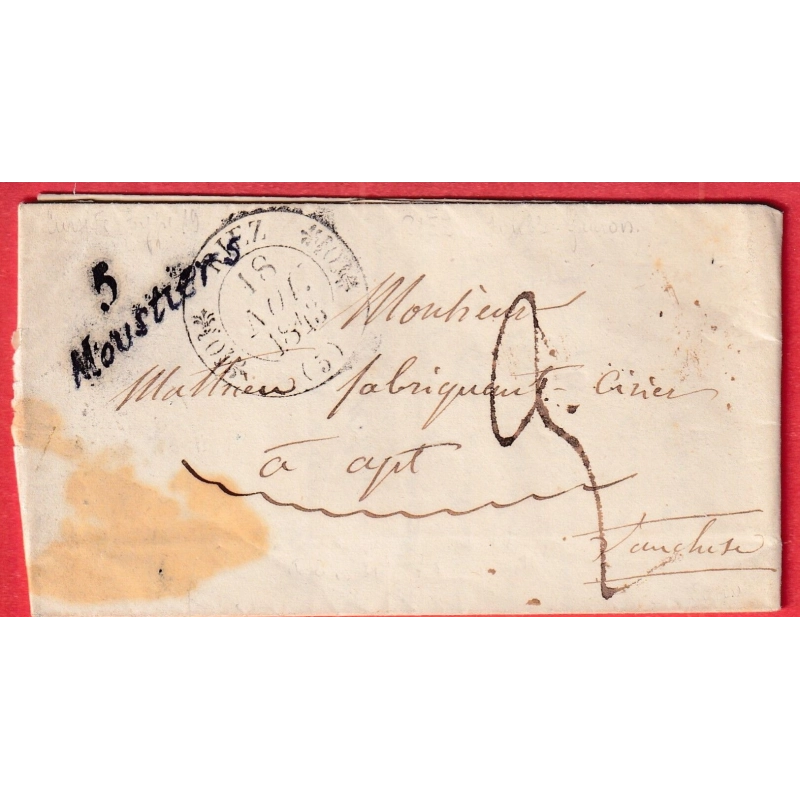 5
Moustiers
RIEZ
18
AOU.
1843
(5)
Monsieur
Matthieu fabriquant Cirier
à apt
Vaucluse